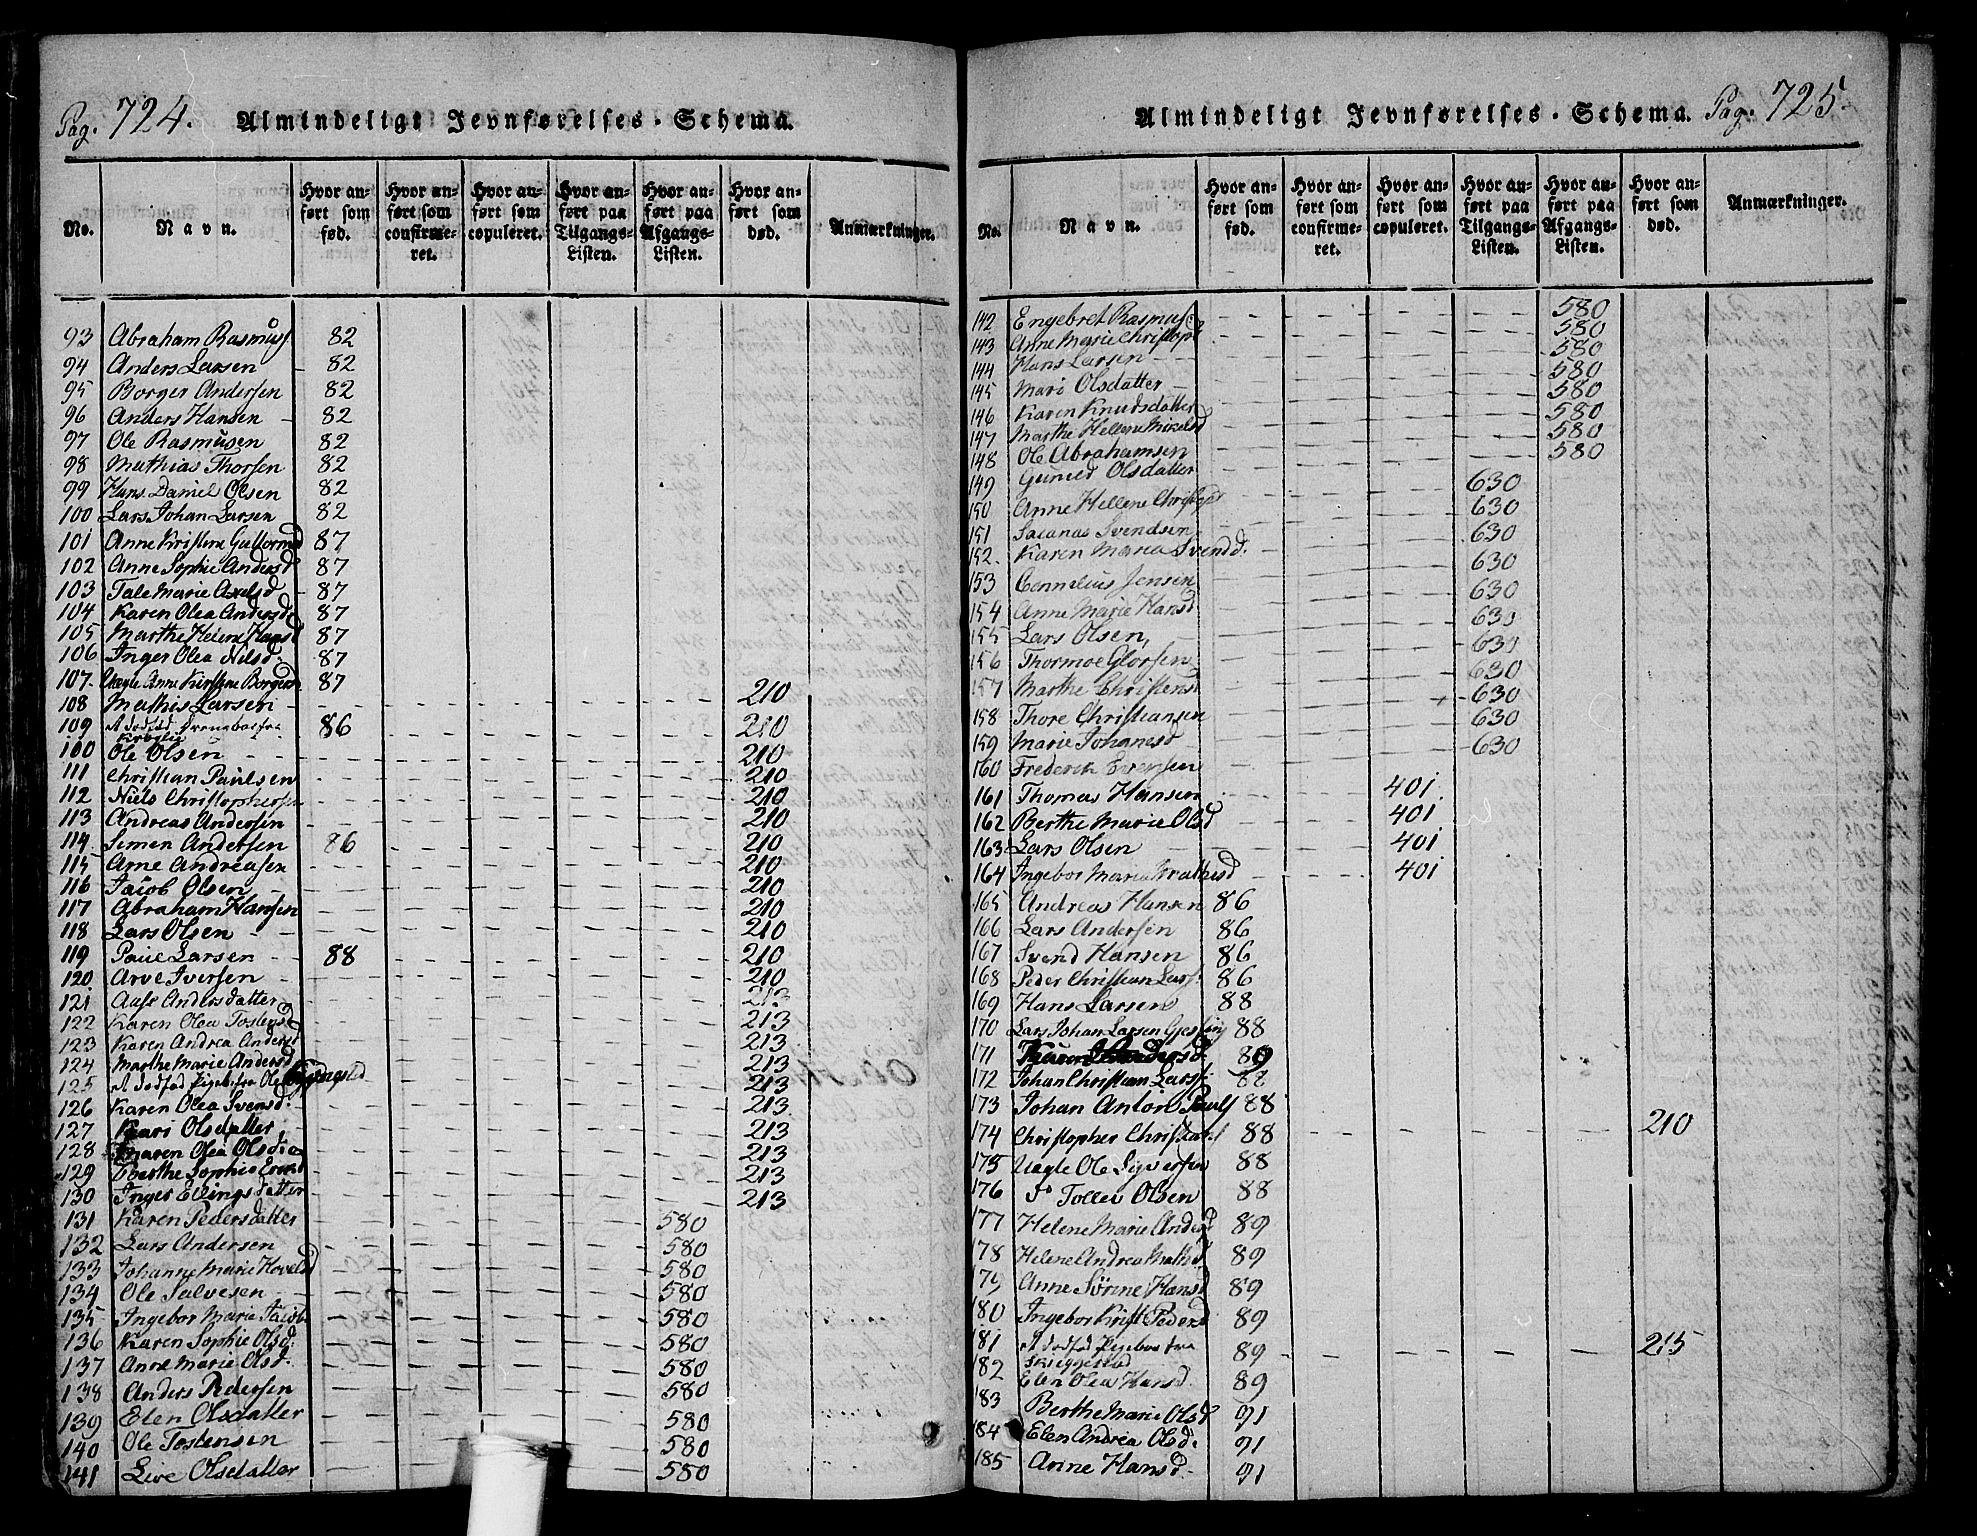 Pag. 724. Almindeligt Jevnførelses-Schema.
No. Navn. Hvor anført som fød. Hvor anført som confirmeret. Hvor anført som copuleret. Hvor anført paa Tilgangs-Listen. Hvor anført paa Afgangs-Listen. Hvor anført som død. Anmærkninger.
93 Abraham Rasmusf 82
94 Anders Larsen 82
95 Borger Andersen 82
96 Anders Hansen 82
97 Ole Rasmusen 82
98 Mathias Thorsen 82
99 Hans Daniel Olsen 82
100 Lars Johan Larsen 82
101 Anne Kristene Guttormd 87
102 Anne Sophie Andersd 87
103 Tale Marie Axelsd 87
104 Karen Olea Andersd 87
105 Marthe Helene Hansd 87
106 Inger Olea Nilsd. 87
107 Uægte Anne Kirstine Borgersd 87
108 Mathis Larsen 210
109 et dødfød Drengebarn fra 86 210
100 Ole Olsen 210
111 Christian Paulsen 210
112 Niels Christophersen 210
113 Andreas Andersen 210
114 Simen Andersen 86 210
115 Arne Andreasen 210
116 Jacob Olsen 210
117 Abraham Hansen 210
118 Lars Olsen 210
119 Paul Larsen 88 210
120 Arve Iversen 210
121 Aase Andersdatter 213
122 Karen Olea Tostensd 213
123 Karen Andrea Andersd 213
124 Marthe Marie Andersd 213
125 et dødfød Pigeb. fra Ole 213
126 Karen Olea Svensd. 213
127 Kari Olsdatter 213
128 Maren Olea Olsd 213
129 Berthe Sophie 213
130 Inger Ellingsdatter 213
131 Karen Pedersdatter 580
132 Lars Andersen 580
133 Johanne Marie 580
134 Ole Salvesen 580
135 Ingebor Marie Jacob 580
136 Karen Sophie Olsd. 580
137 Anne Marie Olsd. 580
138 Anders Pedersen 580
139 Elen Olsdatter 580
140 Ole Tostensen 580
141 Live Olsdatter 580
Almindeligt Jevnførelses-Schema. Pag. 725
No. Navn. Hvor anført som fød. Hvor anført som confirmeret. Hvor anført som copuleret. Hvor anført paa Tilgangs-Listen. Hvor anført paa Afgangs-Listen. Hvor anført som død. Anmærkninger.
142 Engebret Rasmus 580
143 Anne Marie Christopd 580
144 Hans Larsen 580
145 Mari Olsdatter 580
146 Karen Knudsdatter 580
147 Marthe Hellene Mikelsd 580
148 Ole Abrahamsen 580
149 Guneld Olsdatter 580
150 Anne Hellene 630
151 Svendsen 630
152. Karen Maria Svendd. 630
153 Cornelius Jensen 630
154 Anne Marie Hansd 630
155 Lars Olsen 630
156 Thormoe 630
157 Marthe Christensd 630
158 Thore Christiansen 630
159 Marie Johanesd 630
160 Frederik Evensen 630
161 Thomas Hansen 401
162 Berthe Marie Olsd 401
163 Lars Olsen 401
164 Ingebor Maria 401
165 Andreas Hansen 86
166 Lars Andersen 86
167 Svend Hansen 86
168 Peder Christian Larss. 86
169 Hans Larsen 88
170 Lars Johan Larsen 88
171 89
172 Johan Christian Larss. 88
173 Johan Anton Pauls 88
174 Christopher Christians 88 210
175 Uægte Ole Syversen 88
176 do Tollev Olsen 88
177 Helene Marie Andersd 89
178 Helene Andrea Mathsd 89
179 Anne Sørine Hansd 89
180 Ingebor Kirst. Pedersd 89
181 et dødfød Pigebarn fra Skeggestad 89 215
182 Elen Olea Hansd. 89
183 Berthe Marie Olsd 91
184 Elen Andrea Olsd. 91
185 Anne Hansd. 91